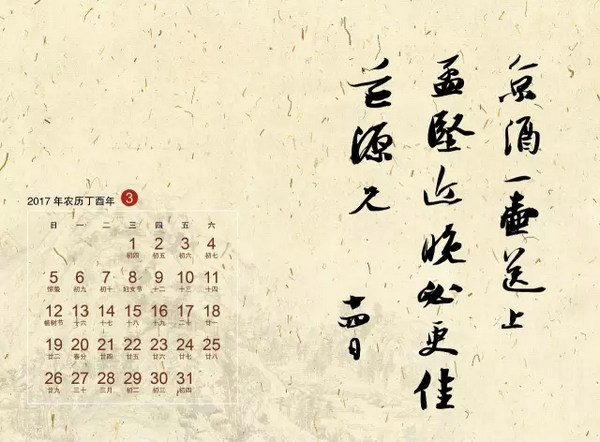 京酒一壺送上
孟堅近晚必更佳
源兄
十四日
2017 年农历丁酉年 3
日 一 二 三 四 五 六
1 2 3 4
初四 初五 初六 初七
5 6 7 8 9 10 11
惊蛰 初九 初十 妇女节 十二 十三 十四
12 13 14 15 16 17 18
植树节 十六 十七 十八 十九 二十 廿一
19 20 21 22 23 24 25
廿二 春分 廿四 廿五 廿六 廿七 廿八
26 27 28 29 30 31
廿九 三十 三月 初二 初三 初四